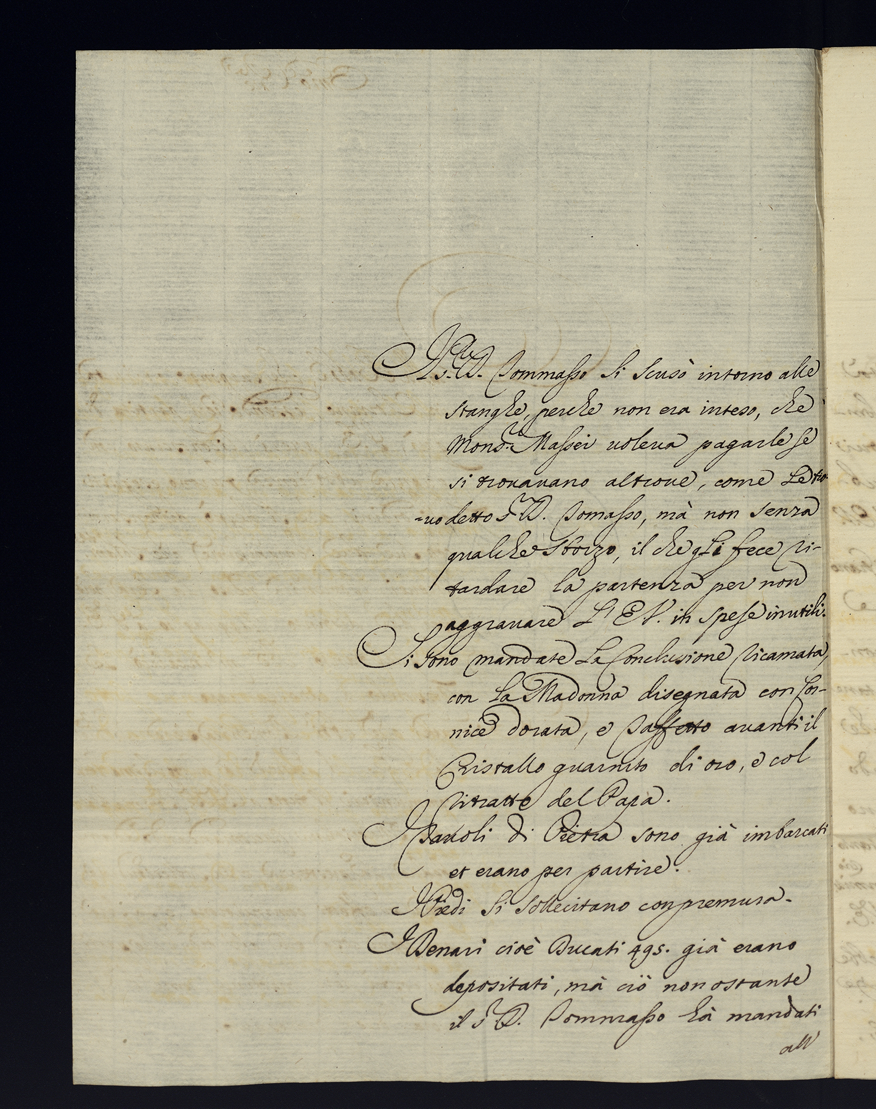 Il P. D. Tommasso si scusò intorno alle
stanghe, perche non era inteso, che
Mons.r Massei voleva pagarle se
si trovavano altrove, come le tro-
=vo detto P. D. Tomasso, mà non senza
qualche sforzo, il che gli fece ri-
tardare la partenza per non
aggravare L' E V. in spese inutili.
Si sono mandate La Conclusione ricamata,
con La Madonna disegnata con Cor-
nice dorata, e Taffetto avanti il
Cristallo guarnito di oro, e col
ritratto del Papa.
I Tavoli di Pietra sono già imbarcati
et erano per partire.
I Piedi si sollecitano con premura.
I Denari cioè Ducati 495. già erano
depositati, mà ciò non ostante
il P. D. Tommasso hà mandati
all'